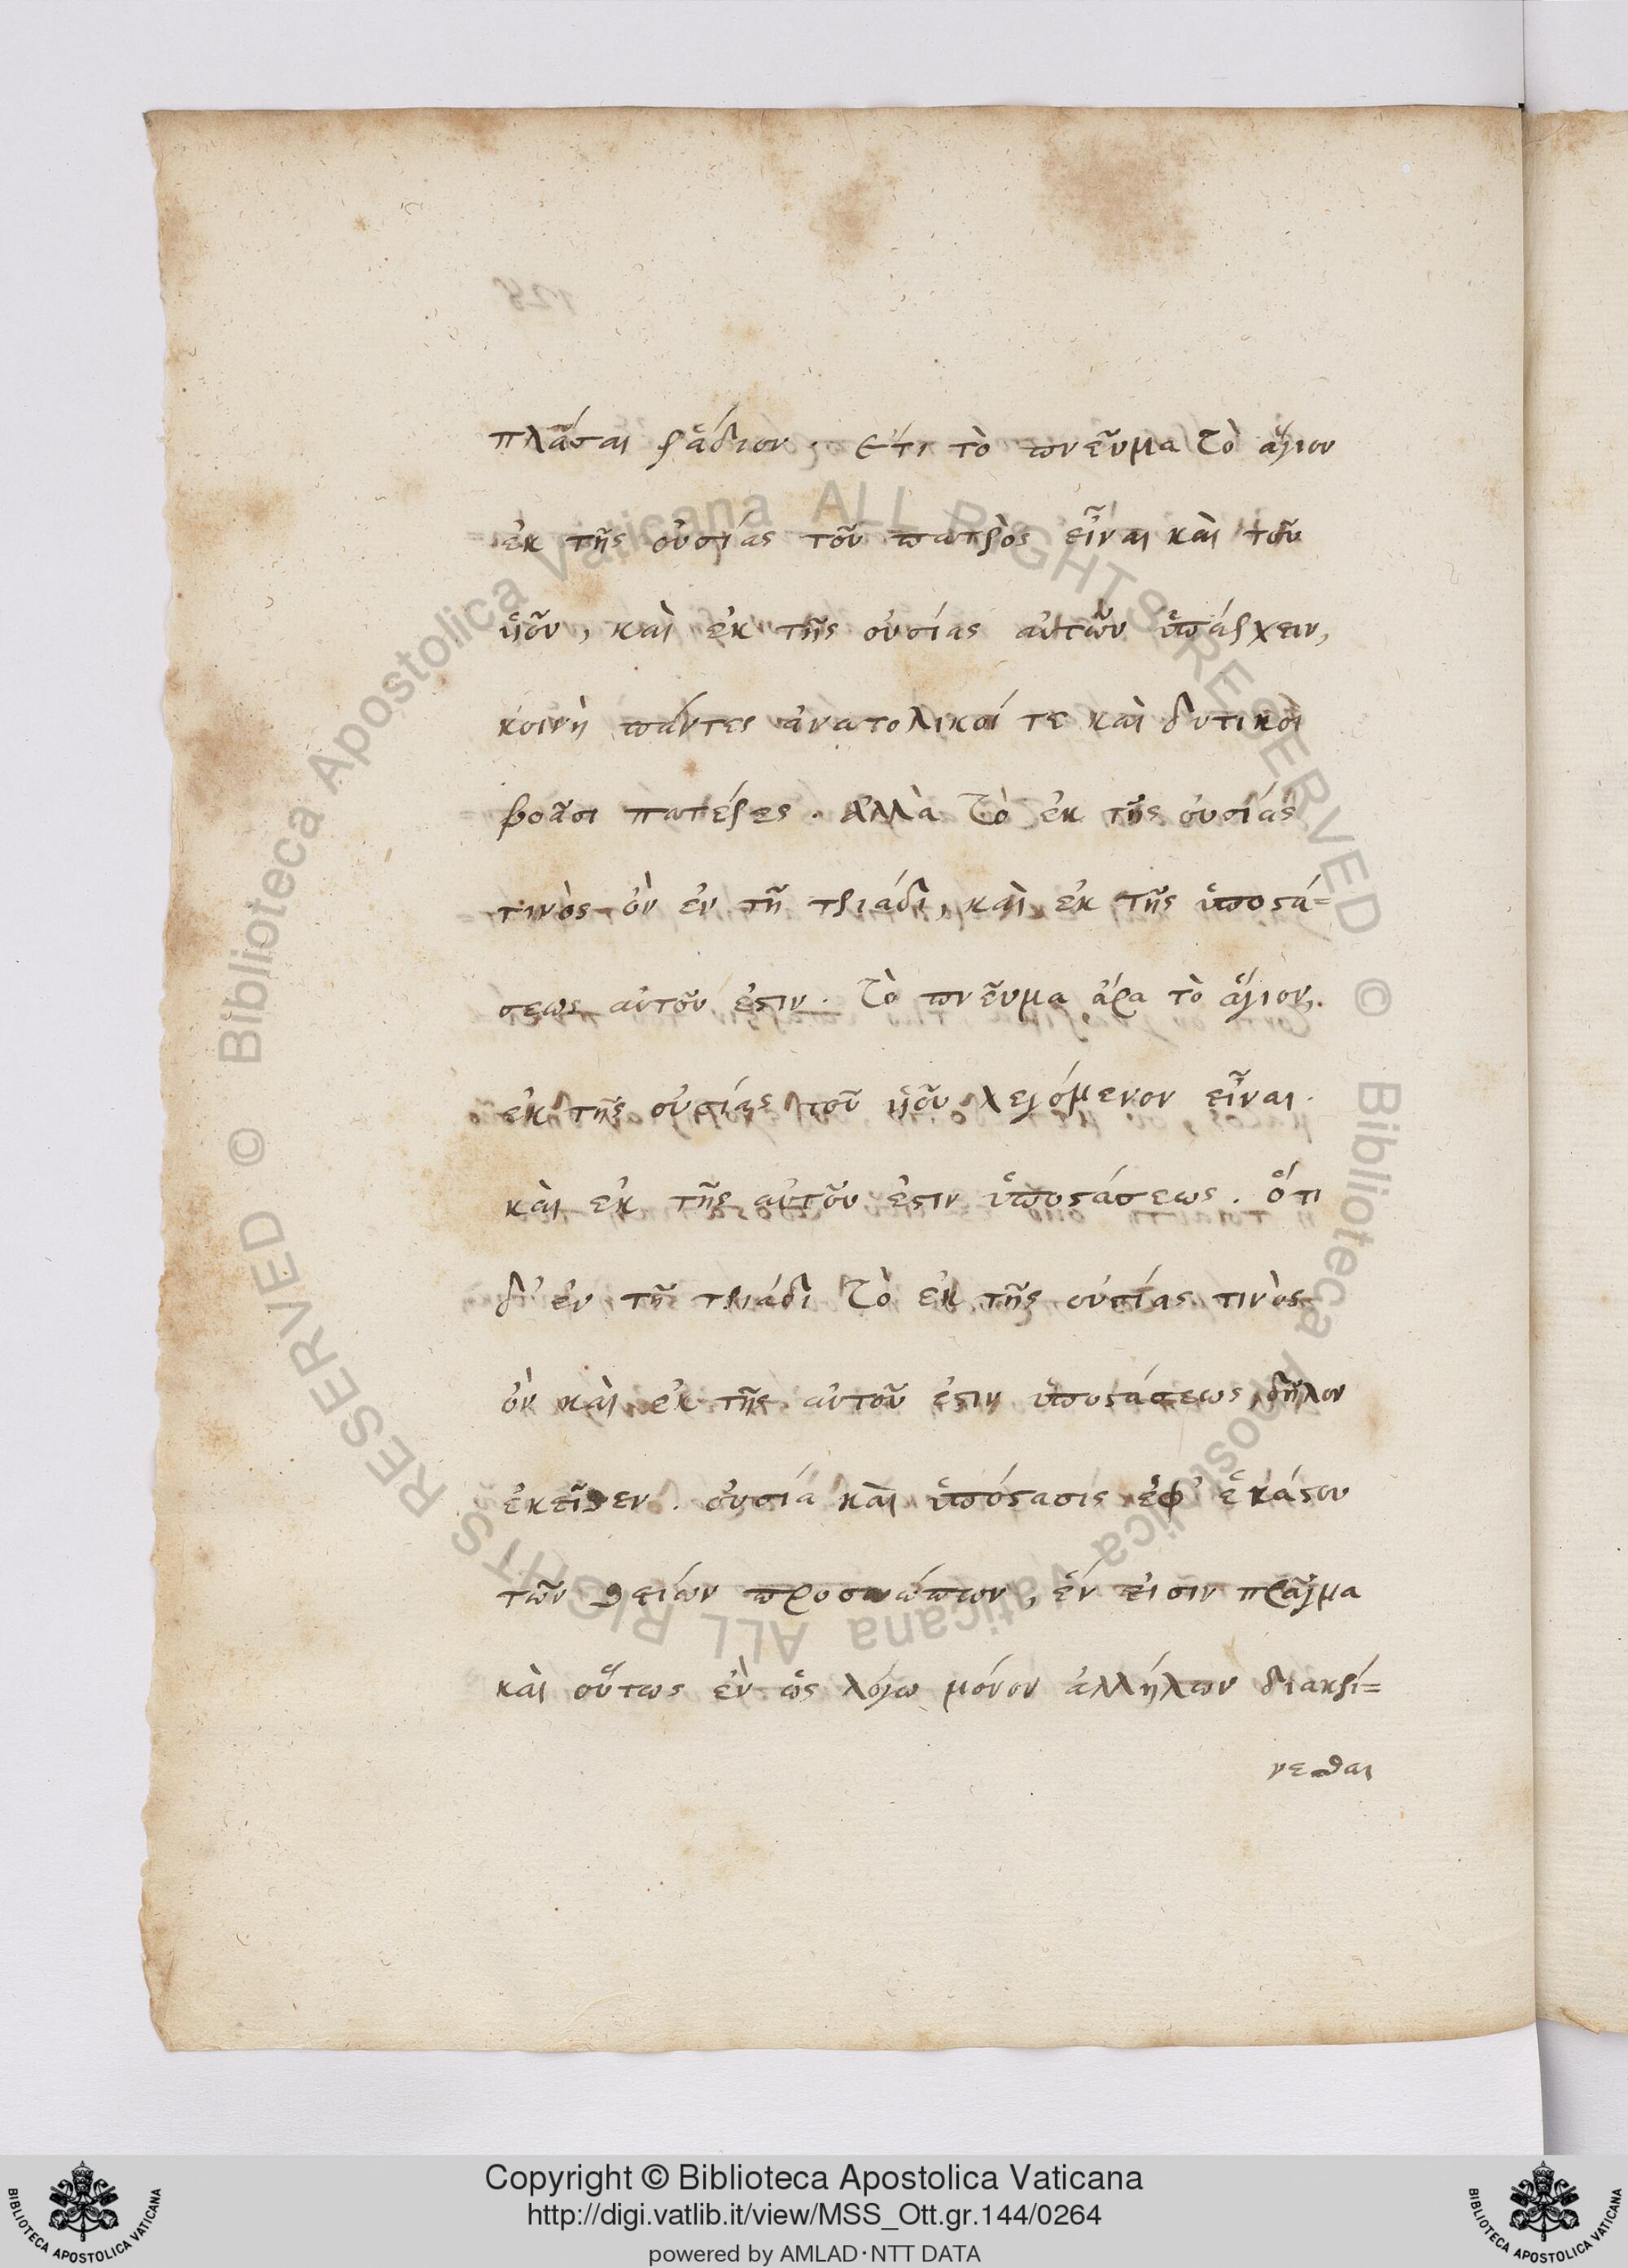 πλᾶσαι ῥᾴδιον. Ἔτι τὸ πνεῦμα τὸ ἅγιον
ἐκ τῆς οὐσίας τοῦ πατρὸς εἶναι καὶ τοῦ
ὑιοῦ, καὶ ἐκ τῆς οὐσίας αὐτῶν ὑπάρχειν,
κοινὴ πάντες ἀνατολικοί τε καὶ δυτικοὶ
βοᾶσι πατέρες. ἀλλὰ τὸ ἐκ τῆς οὐσίας
τινὸς ὂν ἐν τῇ τριάδι, καὶ ἐκ τῆς ὑποστά=
σεως αὐτοῦ ἐστιν. τὸ πνεῦμα ἄρα τὸ ἅγιον,
ἐκ τῆς οὐσίας τοῦ ὑιοῦ λεγόμενον εἶναι.
καὶ ἐκ τῆς αὐτοῦ ἐστιν ὑποστάσεως. ὅτι
δ' ἐν τῇ τριάδι τὸ ἐκ τῆς οὐσίας τινὸς
ὂν καὶ ἐκ τῆς αὐτοῦ ἐστιν ὑποστάσεως, δῆλον
ἐκεῖθεν. οὐσία καὶ ὑπόστασις ἐφ' ἑκάστου
τῶν θείων προσώπων, ἕν εἰσιν πρᾶγμα
καὶ οὕτως ἓν ὡς λόγω μόνον ἀλλήλων διακρί=
νεσθαι
Biblioteca Apostolica Vaticana ALL RIGHTS RESERVED ©
Biblioteca Apostolica Vaticana ALL RIGHTS RESERVED ©
Copyright © Biblioteca Apostolica Vaticana
http://digi.vatlib.it/view/MSS_Ott.gr.144/0264
powered by AMLAD·NTT DATA
BIBLIOTECA APOSTOLICA VATICANA
BIBLIOTECA APOSTOLICA VATICANA